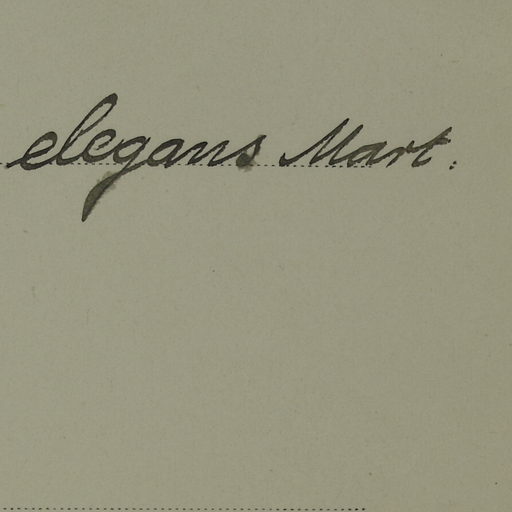 elegans Mart.